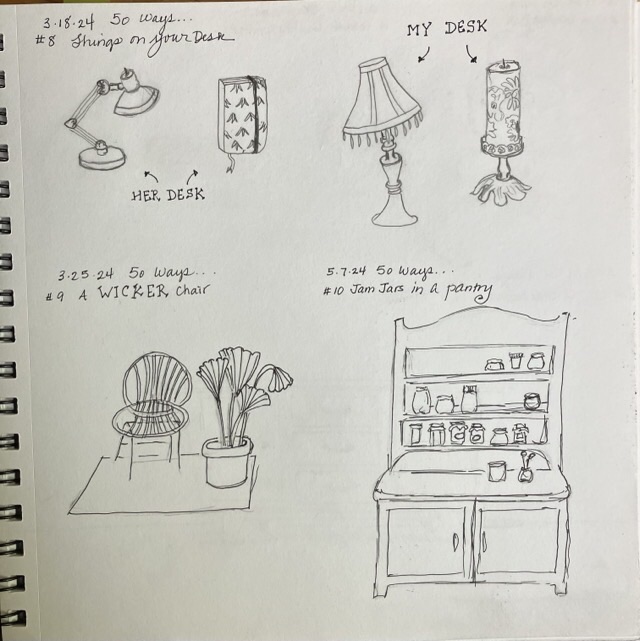 3.18.24 50 Ways...
#8 Things on your Desk
MY DESK
HER DESK
3.25.24 50 Ways...
#9 A WICKER Chair
5.7.24 50 Ways...
#10 Jam Jars in a pantry